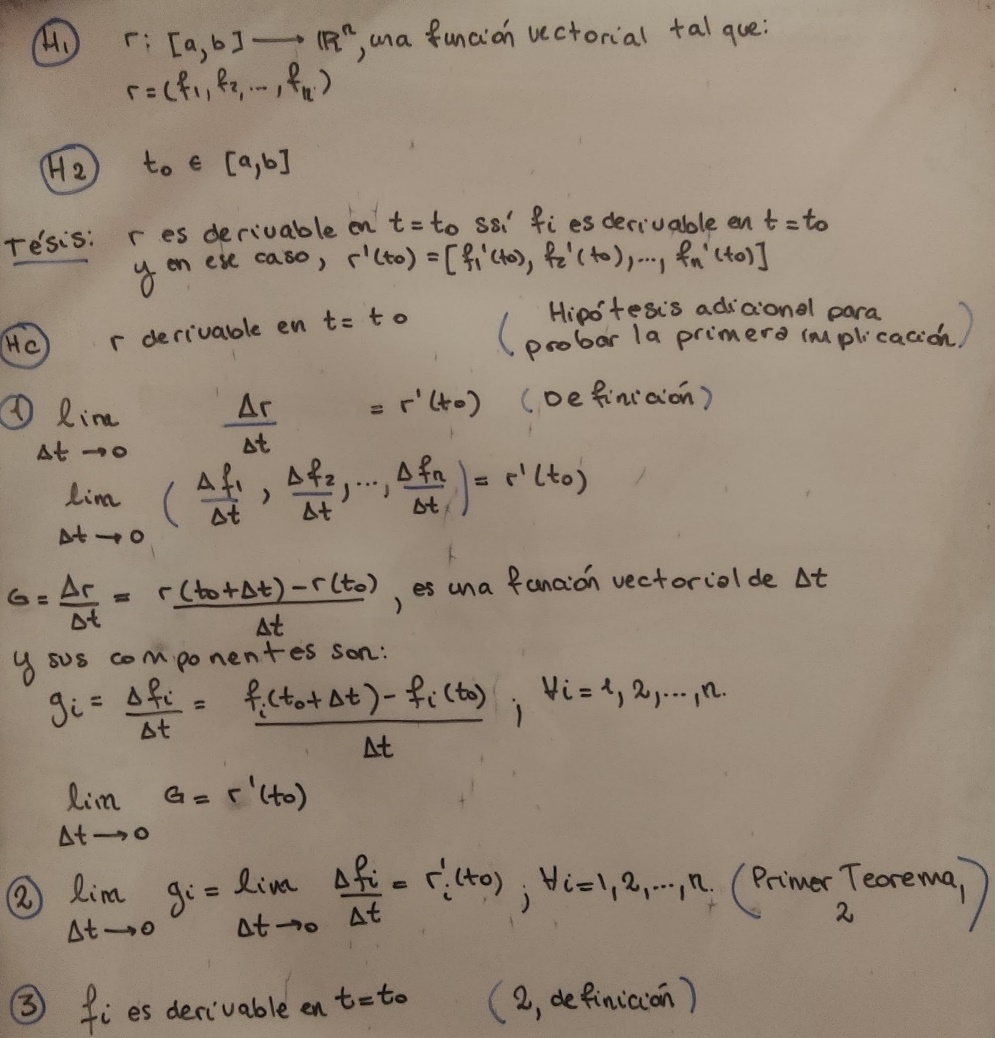 H1 r: [a,b] ⟶ ℝⁿ, una función vectorial tal que:
r=(f₁, f₂, ..., fₙ)
H2 t₀ ∈ [a,b]
Tésis: r es derivable en t=t₀ ssí fi es derivable en t=t₀
y en ese caso, r'(t₀) = [f₁'(t₀), f₂'(t₀), ..., fₙ'(t₀)]
HC r derivable en t= t₀ (Hipótesis adicional para
probar la primera implicación)
1 lim Δr/Δt = r'(t₀) (Definición)
Δt → 0
lim (Δf₁/Δt, Δf₂/Δt, ..., Δfₙ/Δt) = r'(t₀)
Δt → 0
G = Δr/Δt = r(t₀+Δt) - r(t₀)/Δt, es una función vectorial de Δt
y sus componentes son:
gi = Δfi/Δt = fi(t₀+Δt) - fi(t₀)/Δt ; ∀i = 1, 2, ..., n.
lim G = r'(t₀)
Δt → 0
2 lim gi = lim Δfi/Δt = r'i(t₀) ; ∀i=1, 2, ..., n. (Primer Teorema,
Δt → 0 Δt → 0 2)
3 fi es derivable en t=t₀ (2, definición)